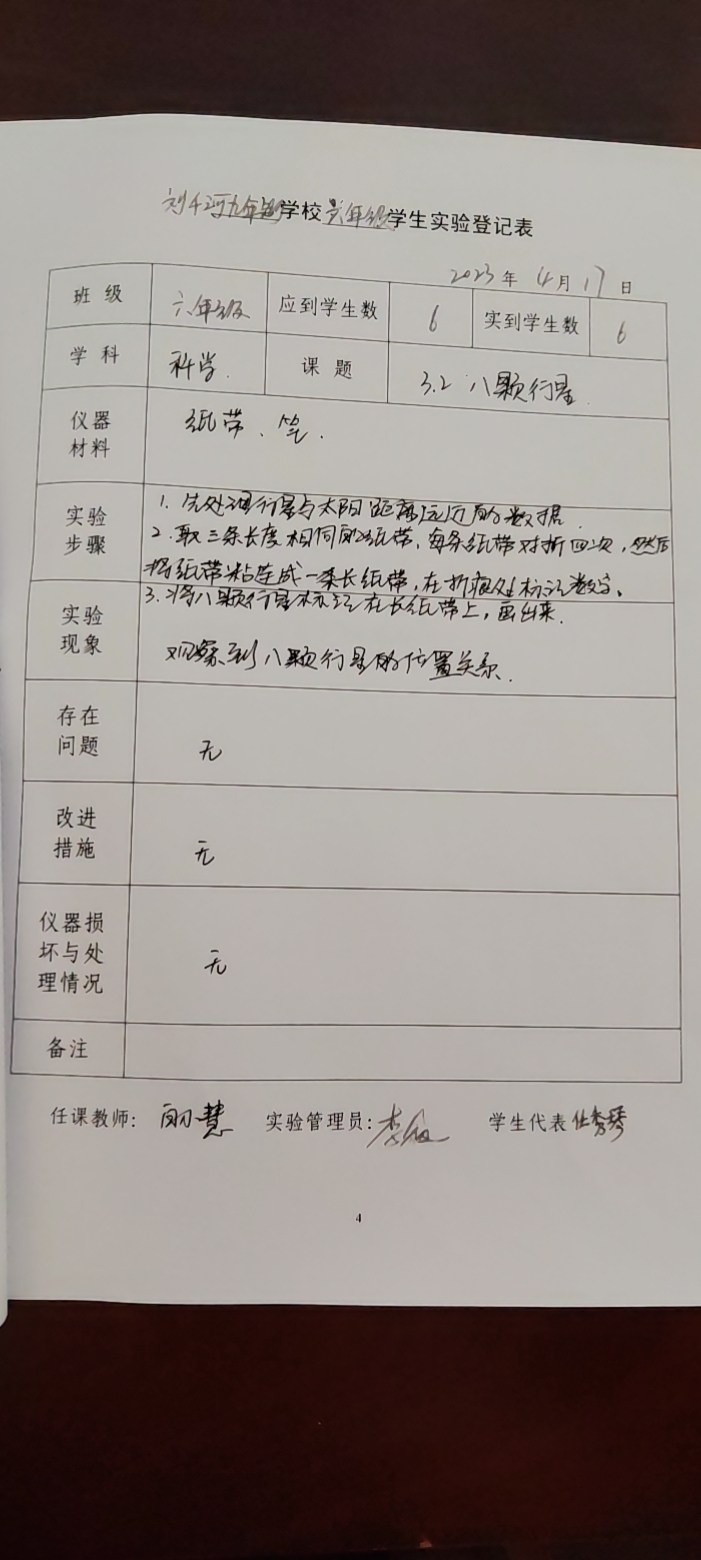 刘千河九年制学校六年级学生实验登记表
2023年4月17日
班级 六年级 应到学生数 6 实到学生数 6
学科 科学. 课题 3.2 八颗行星.
仪器材料 纸带、笔.
实验步骤
1. 先处理行星与太阳距离远近的数据.
2. 取三条长度相同的纸带, 每条纸带对折四次, 然后
将纸带粘连成一条长纸带, 在折痕处标记数字、
3. 将八颗行星标记在长纸带上, 画出来.
实验现象
观察到八颗行星的位置关系.
存在问题 无
改进措施 无
仪器损坏与处理情况 无
备注
任课教师: 慧 实验管理员: 李 学生代表 秀琴
4